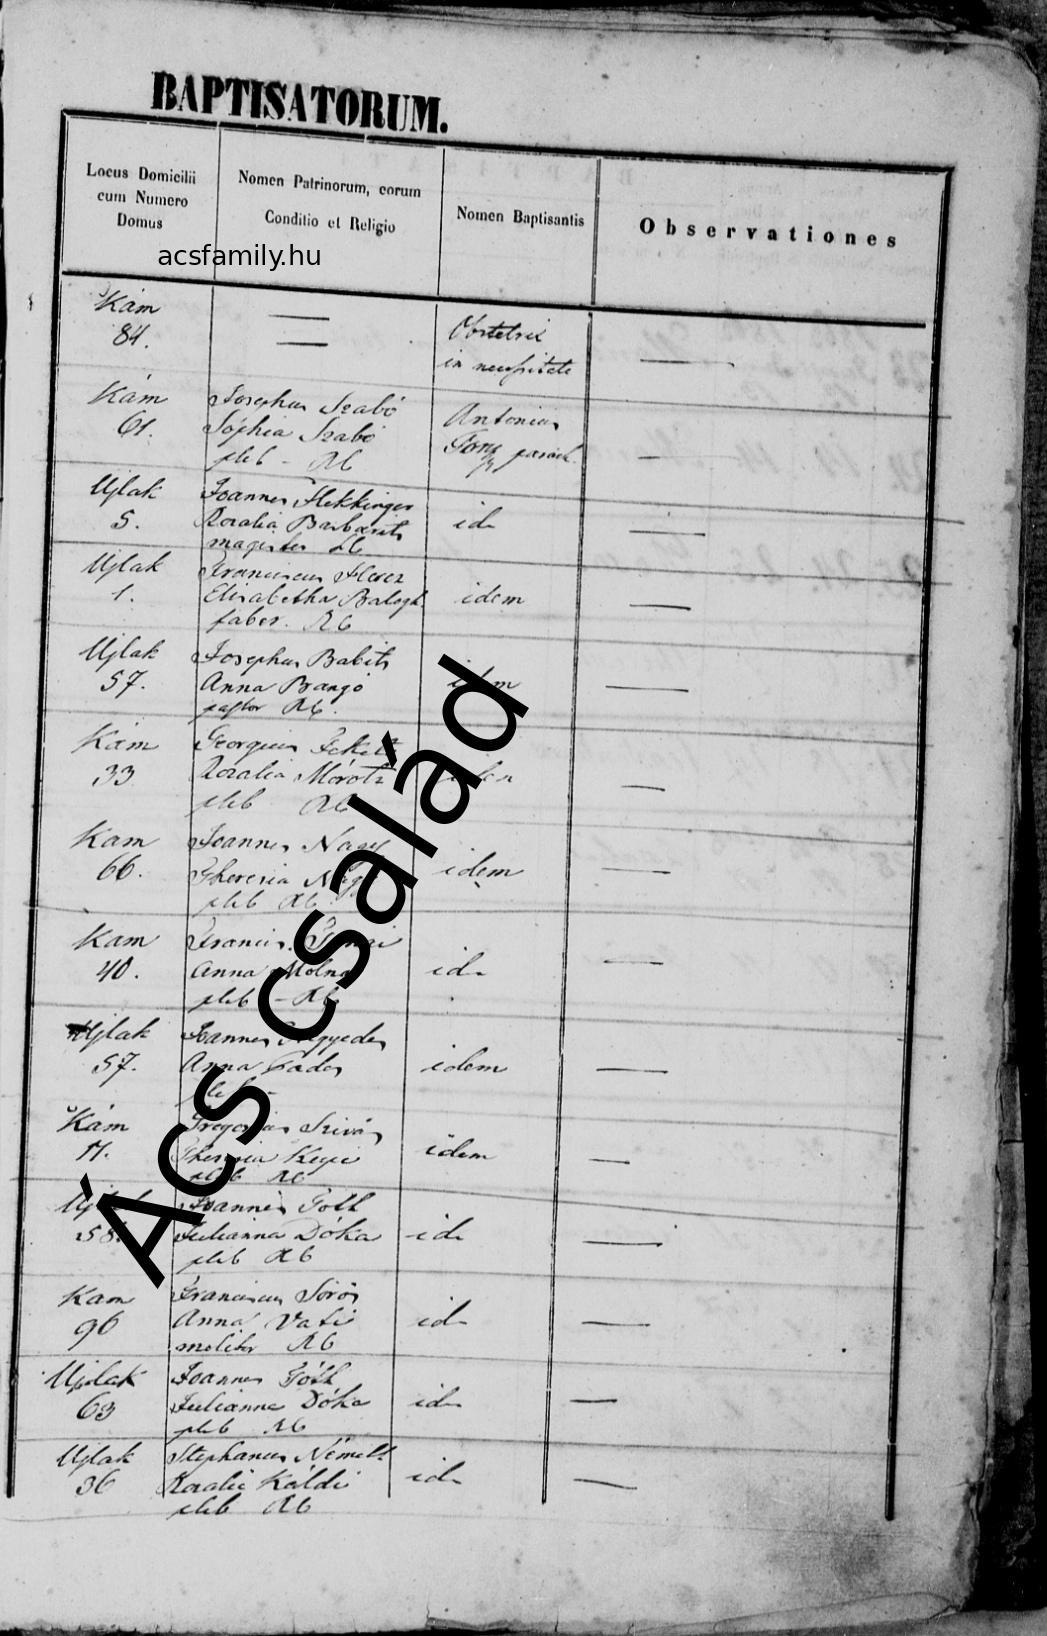 BAPTISATORUM.
Locus Domicilii
cum Numero
Domus
Nomen Patrinorum, eorum
Conditio et Religio
Nomen Baptisantis
Observationes
acsfamily.hu
Kám
84.
Obstetrix
in necessitate
Kám
61.
Josephus Szabó
Sophia Szabó
pleb - RC
Antonius
paroch.
Ujlak
5.
Joannes
Rosalia
magister RC
id
Ujlak
1.
Franciscus
Elisabetha Balogh
faber. RC
idem
Ujlak
57.
Josephus Babits
Anna
pastor RC.
idem
Kám
33
Georgius
Rosalia Mórotz
pleb RC
idem
Kam
66.
Joannes Nagy
Theresia Nagy
pleb RC
idem
Kam
40.
Francis.
Anna Molnár
pleb - RC
id
Ujlak
57.
Joannes
Anna
idem
Kám
11.
Gregorius
Theresia
pleb RC
idem
Ujlak
58.
Joannes Tóth
Julianna Dóka
pleb RC
id
Kam
96
Franciscus Sörös
Anna
molitor RC
id
Ujlak
63
Joannes Tóth
Julianna Dóka
pleb RC
id
Ujlak
36
Stephanus Németh
Rosalia Káldi
pleb RC
id
Ács család